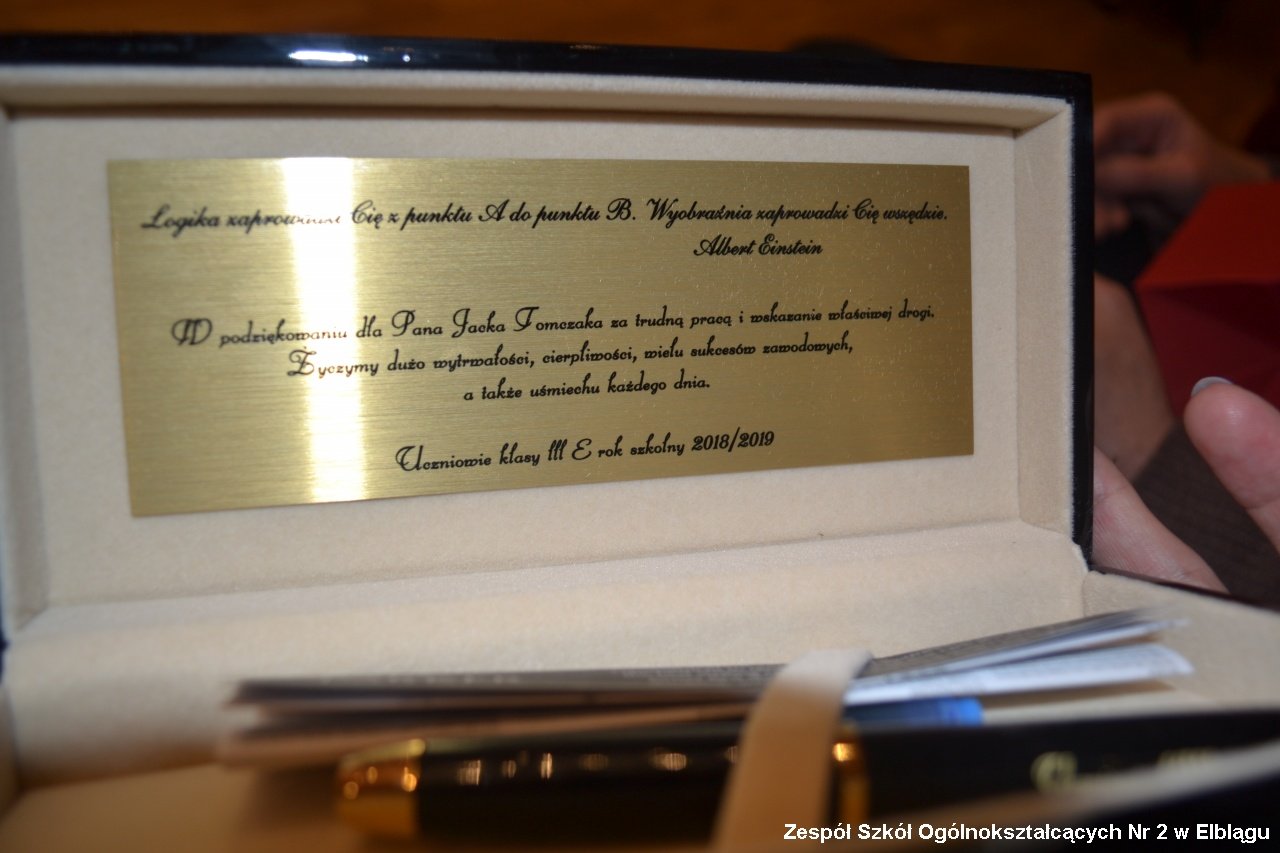 Logika zaprowadzi Cię z punktu A do punktu B. Wyobraźnia zaprowadzi Cię wszędzie.
Albert Einstein
W podziękowaniu dla Pana Jacka Tomczaka za trudną pracę i wskazanie właściwej drogi.
Życzymy dużo wytrwałości, cierpliwości, wielu sukcesów zawodowych,
a także uśmiechu każdego dnia.
Uczniowie klasy III E rok szkolny 2018/2019
Zespół Szkół Ogólnokształcących Nr 2 w Elblągu